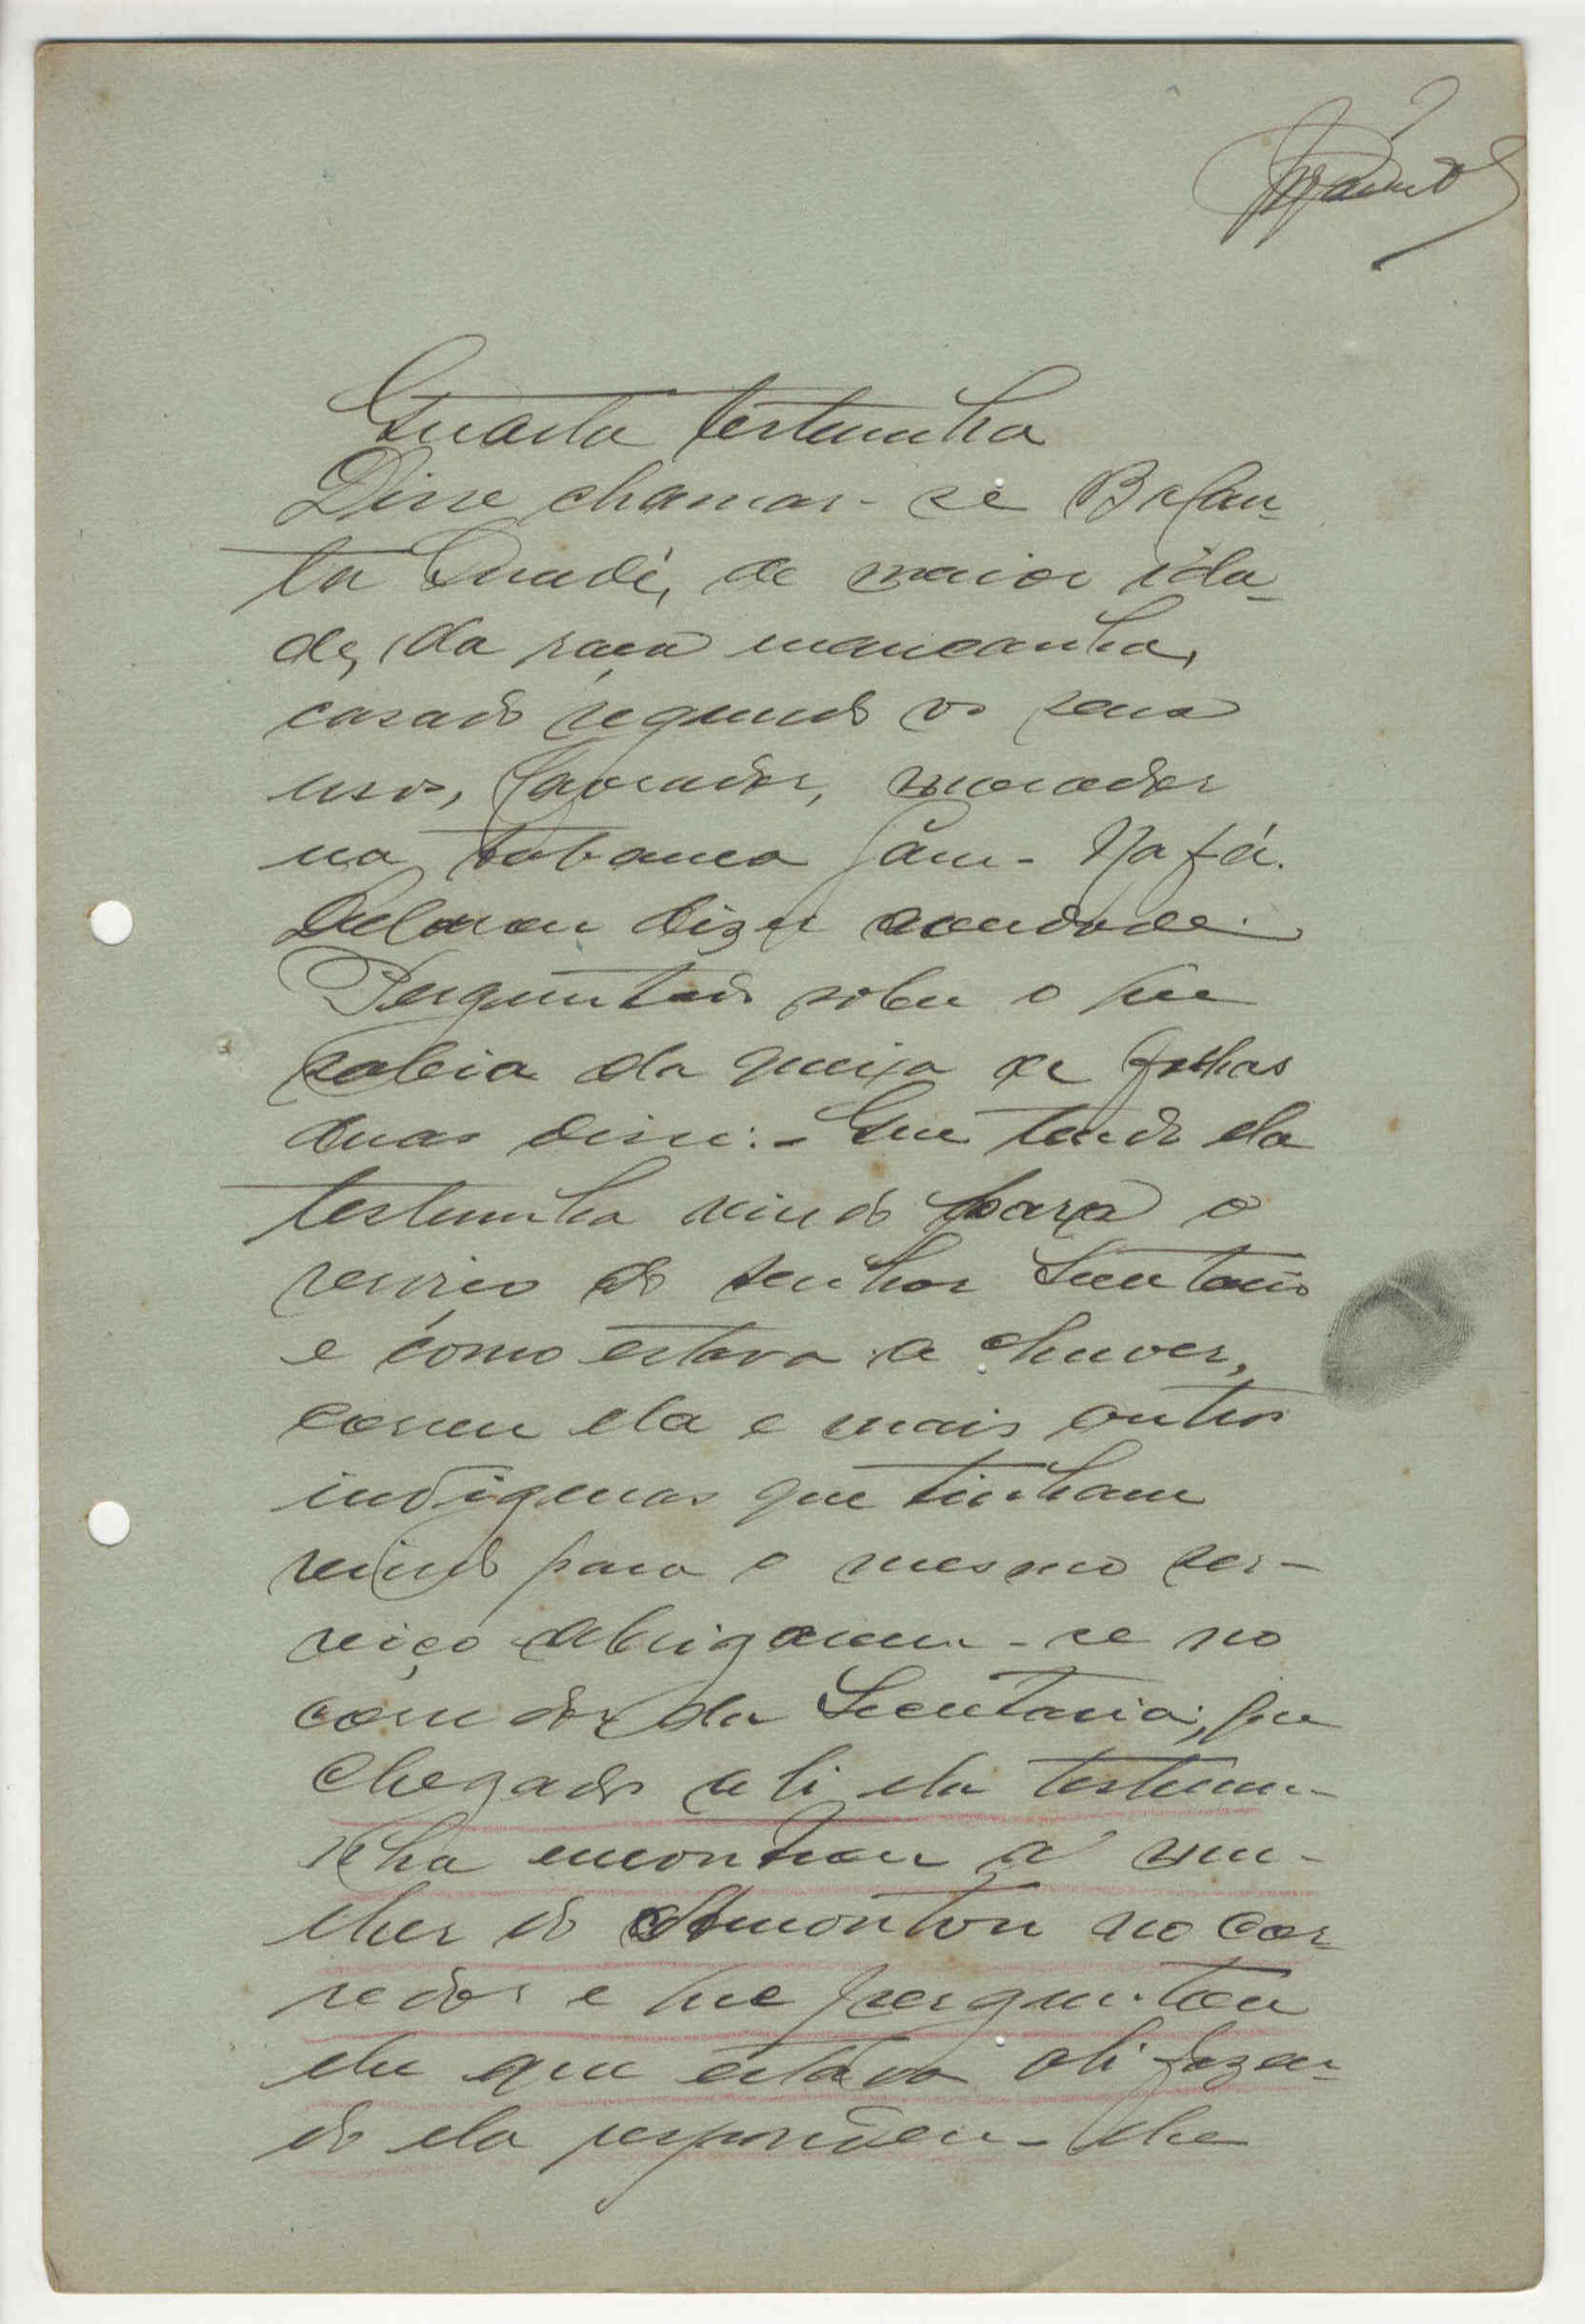 Quarta testemunha
Disse chamar-se Brfan-
ta Quadé, de maior ida-
de, da raça mancanha,
casado segundo os seus
usos, lavrador, morador
na tabanca Jam-Nafá.
Declarou dizer a verdade.
Perguntado sobre o que
sabia da queixa de folhas
duas disse:- Que tendo ela
testemunha vindo para o
serviço do senhor Secretario
e como estava a chuver,
correu ela e mais outros
indigenas que tinham
vindo para o mesmo ser-
viço abrigaram-se no
corredor da Secretaria; que
chegado ali ela testemu-
nha encontrou a mu-
lher do no cor-
redor e que perguntou
ela que estava ali fazen-
do ela respondeu-lhe